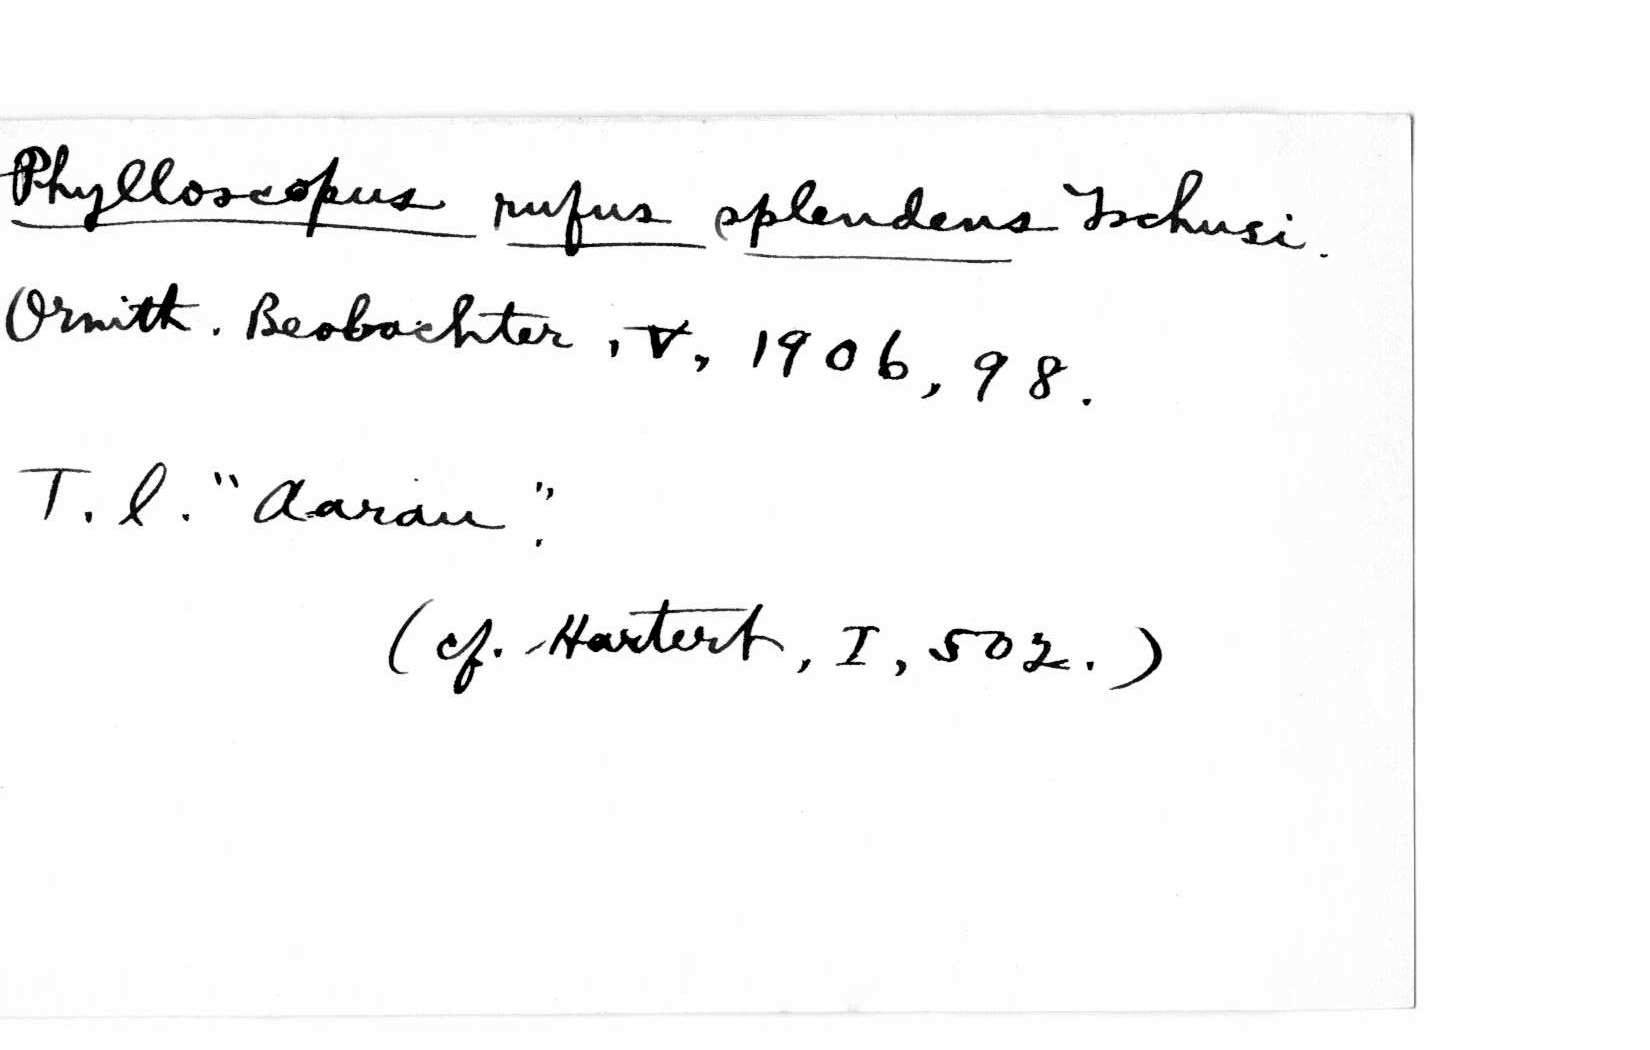 Phylloscopus rufus splendens Tschusi.
Ornith. Beobachter, V, 1906, 98.
T. l. "Aarau".
(cf. Hartert, I, 502.)